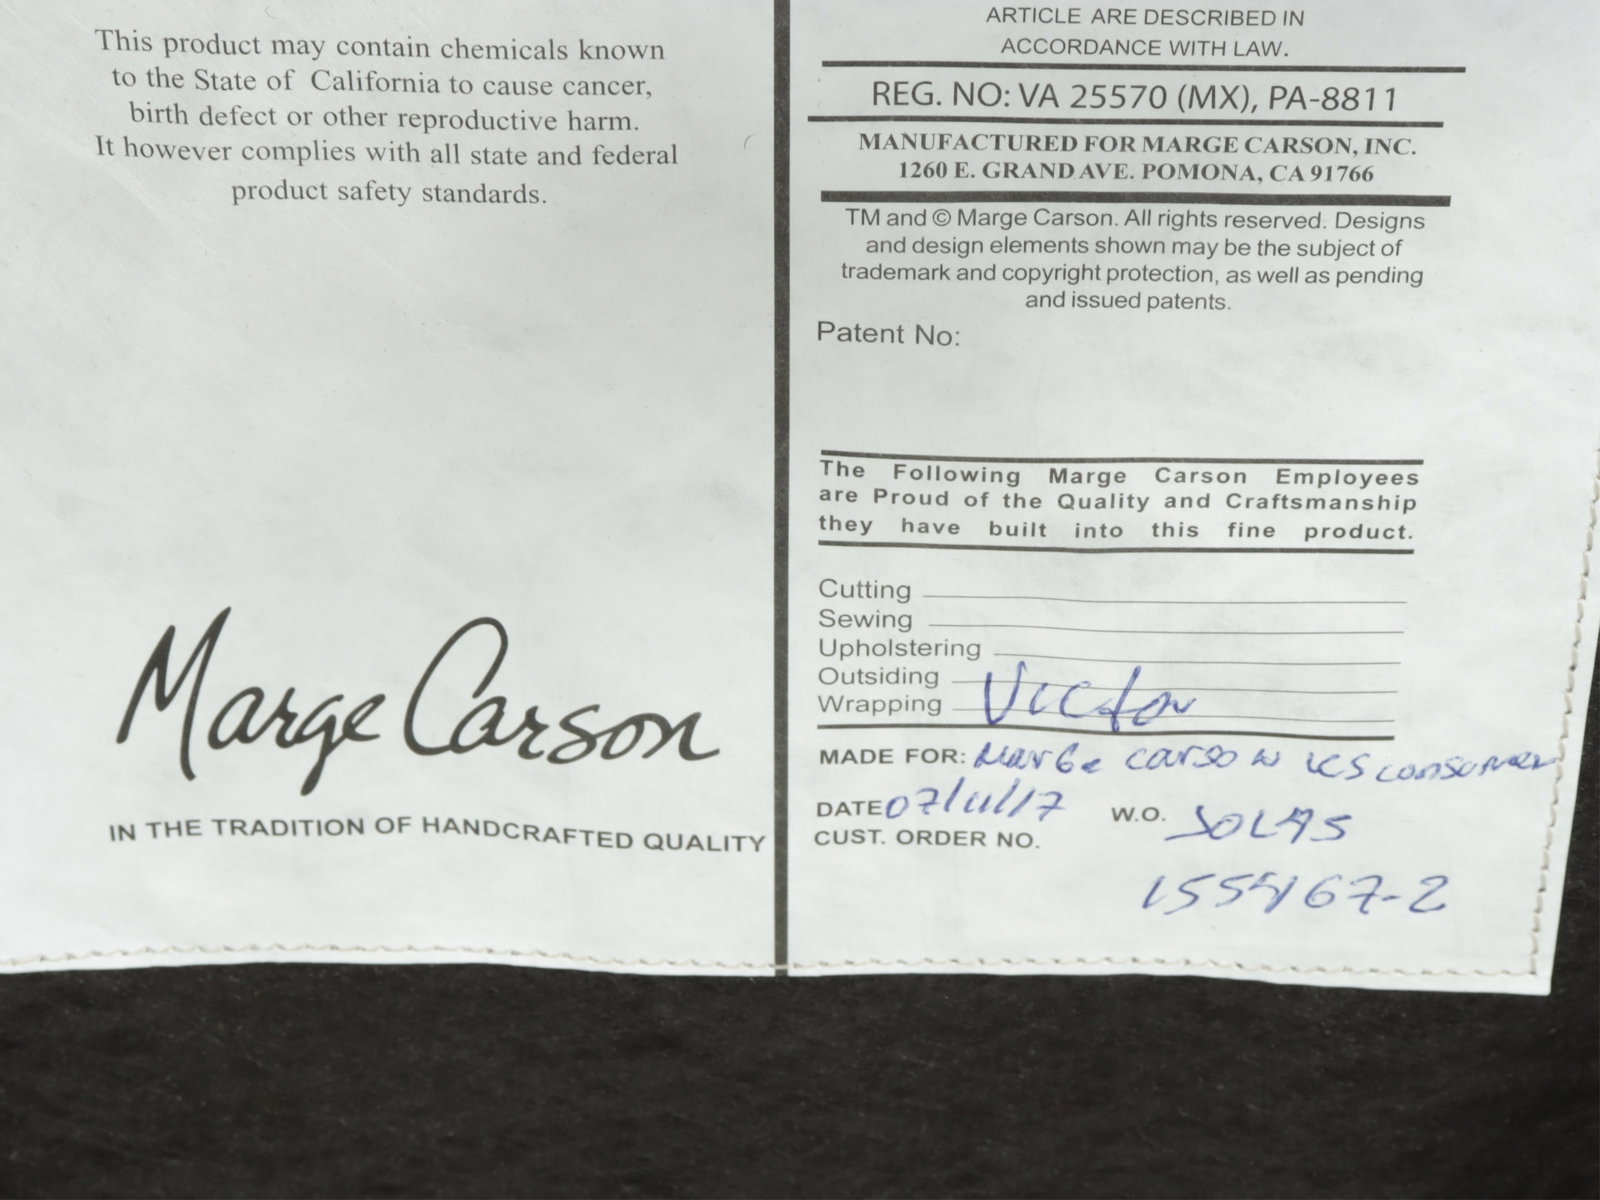 This product may contain chemicals known
to the State of California to cause cancer,
birth defect or other reproductive harm.
It however complies with all state and federal
product safety standards.
Marge Carson
IN THE TRADITION OF HANDCRAFTED QUALITY
ARTICLE ARE DESCRIBED IN
ACCORDANCE WITH LAW.
REG. NO: VA 25570 (MX), PA-8811
MANUFACTURED FOR MARGE CARSON, INC.
1260 E. GRAND AVE. POMONA, CA 91766
TM and © Marge Carson. All rights reserved. Designs
and design elements shown may be the subject of
trademark and copyright protection, as well as pending
and issued patents.
Patent No:
The Following Marge Carson Employees
are Proud of the Quality and Craftsmanship
they have built into this fine product.
Cutting
Sewing
Upholstering
Outsiding
Wrapping Victor
MADE FOR: Marge Carson consumer
DATE 07/11/17 W.O.
CUST. ORDER NO.